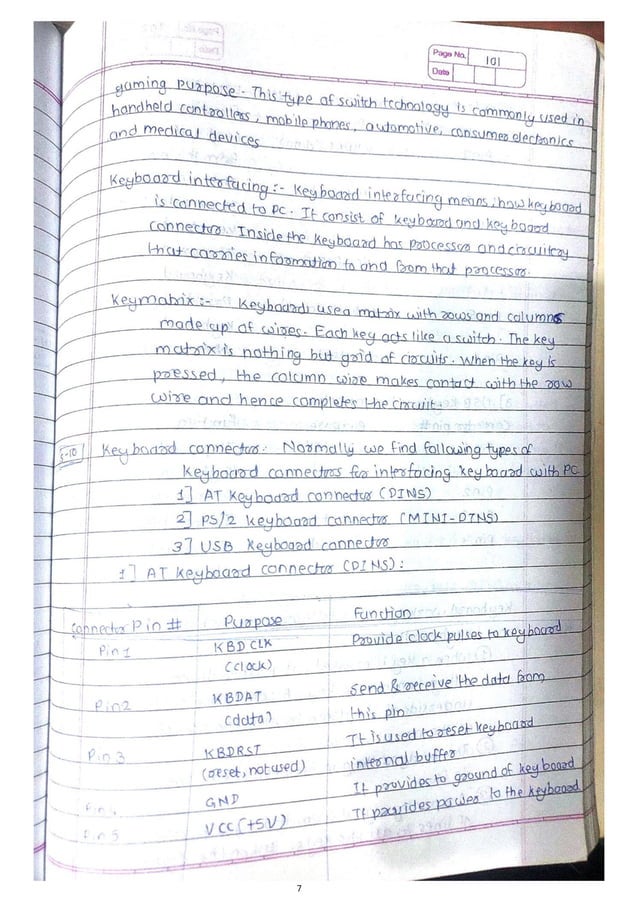 Page No. 101
Date
gaming purpose - This type of switch technology is commonly used in
handheld controllers, mobile phones, automotive, consumer electronics
and medical devices
Keyboard interfacing :- Keyboard interfacing means, how keyboard
is connected to PC. It consist of keyboard and keyboard
connector. Inside the keyboard has processor and circuitry
that carries information to and from that processor.
Keymatrix :- Keyboards use a matrix with rows and columns
made up of wires. Each key acts like a switch. The key
matrix is nothing but grid of circuits. When the key is
pressed, the column wire makes contact with the row
wire and hence completes the circuit.
Keyboard connector: Normally we find following types of
Keyboard connectors for interfacing keyboard with PC
1] AT Keyboard connector (DIN5)
2] PS/2 keyboard connector (MINI-DIN5)
3] USB Keyboard connector
1] AT Keyboard connector (DIN5) :
Connector Pin # Purpose Function
Pin 1 KBD CLK Provide clock pulses to keyboard
(clock)
Pin 2 KBDAT Send & receive the data from
(data) this pin
Pin 3 KBDRST It is used to reset keyboard
(reset, not used) internal buffer
Pin 4 GND It provides to ground of keyboard
Pin 5 VCC (+5V) It provides power to the keyboard
7